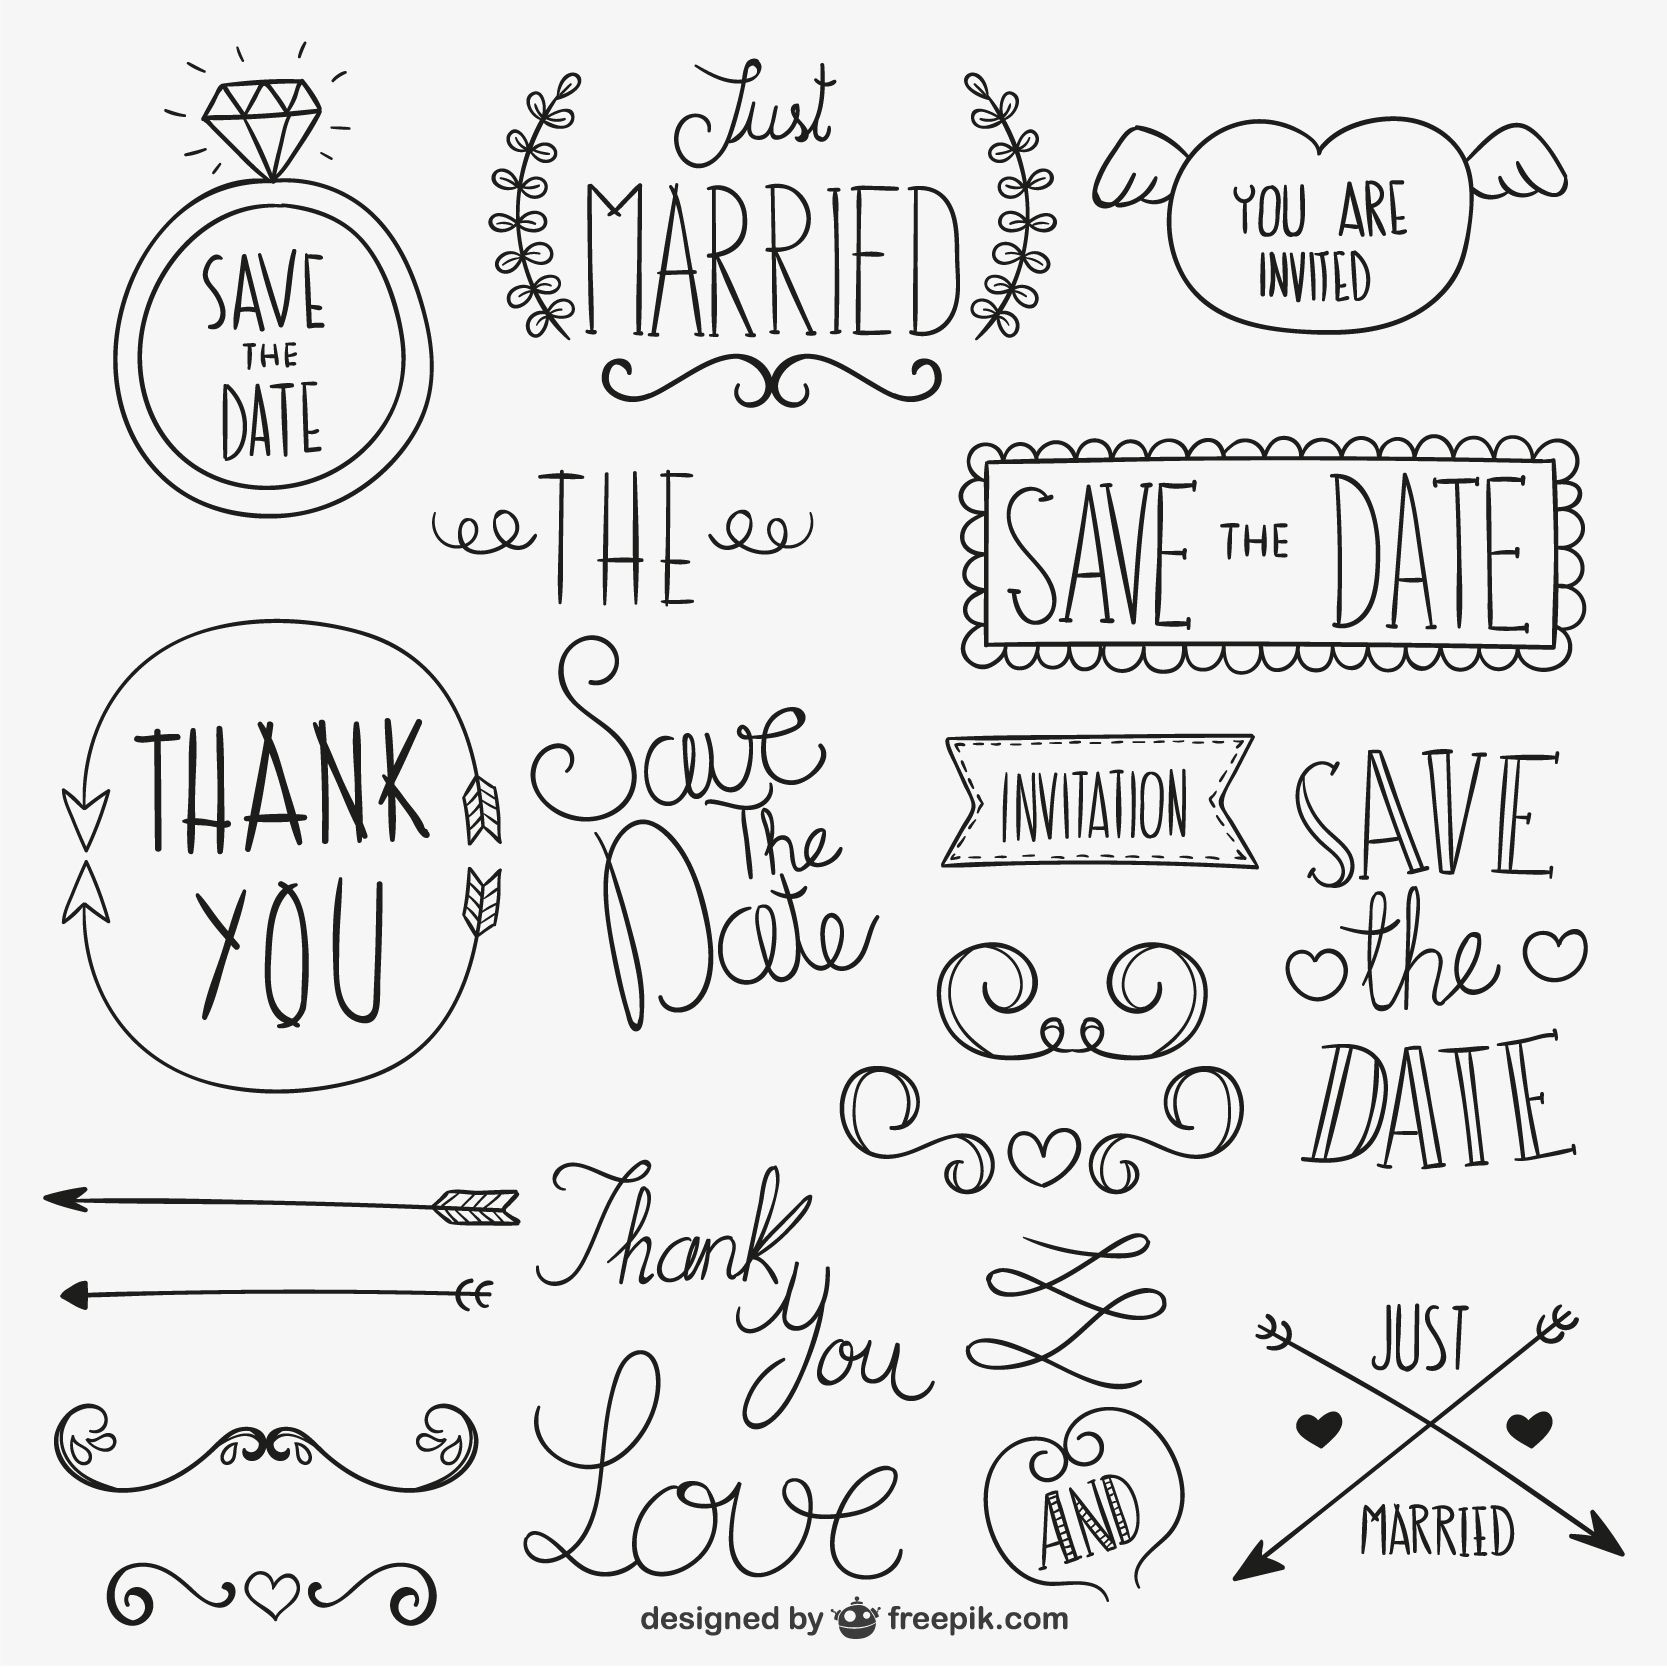 Just
MARRIED
YOU ARE
INVITED
SAVE
THE
DATE
THE
SAVE THE DATE
THANK
YOU
Save
The
Date
INVITATION
SAVE
the
DATE
Thank
You
Love
AND
JUST
MARRIED
designed by freepik.com